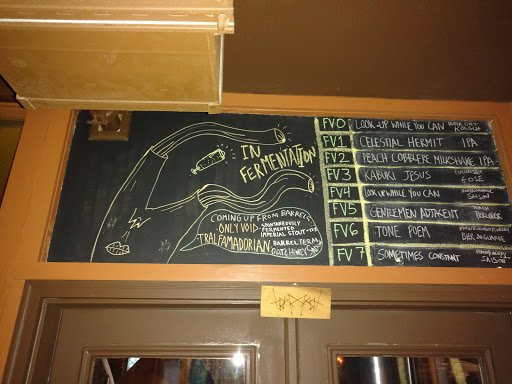 IN
FERMENTATION
COMING UP FROM BARRELS
ONLY VOID SPONTANEOUSLY FERMENTED IMPERIAL STOUT
TRALFAMADORIAN BARREL FERM.
FV0 LOOK UP WHILE YOU CAN
FV1 CELESTIAL HERMIT IPA
FV2 PEACH COBBLERE MILKSHAKE IPA
FV3 KABUKI JESUS CUCUMBER GOSE
FV4 LOOK UP WHILE YOU CAN SAISON
FV5 GENTLEMEN BERLINER
FV6 TONE POEM
FV7 SOMETIMES CONSTANT SAISON